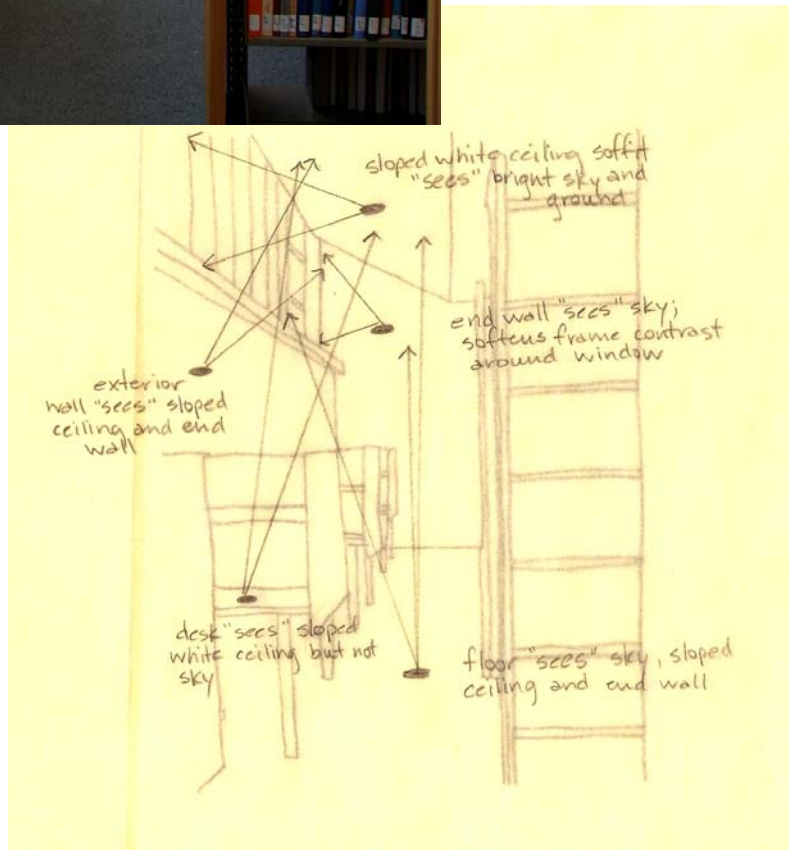 sloped white ceiling soffit
"sees" bright sky and
ground
end wall "sees" sky;
softens frame contrast
around window
exterior
wall "sees" sloped
ceiling and end
wall
desk "sees" sloped
white ceiling but not
sky
floor "sees" sky, sloped
ceiling and end wall